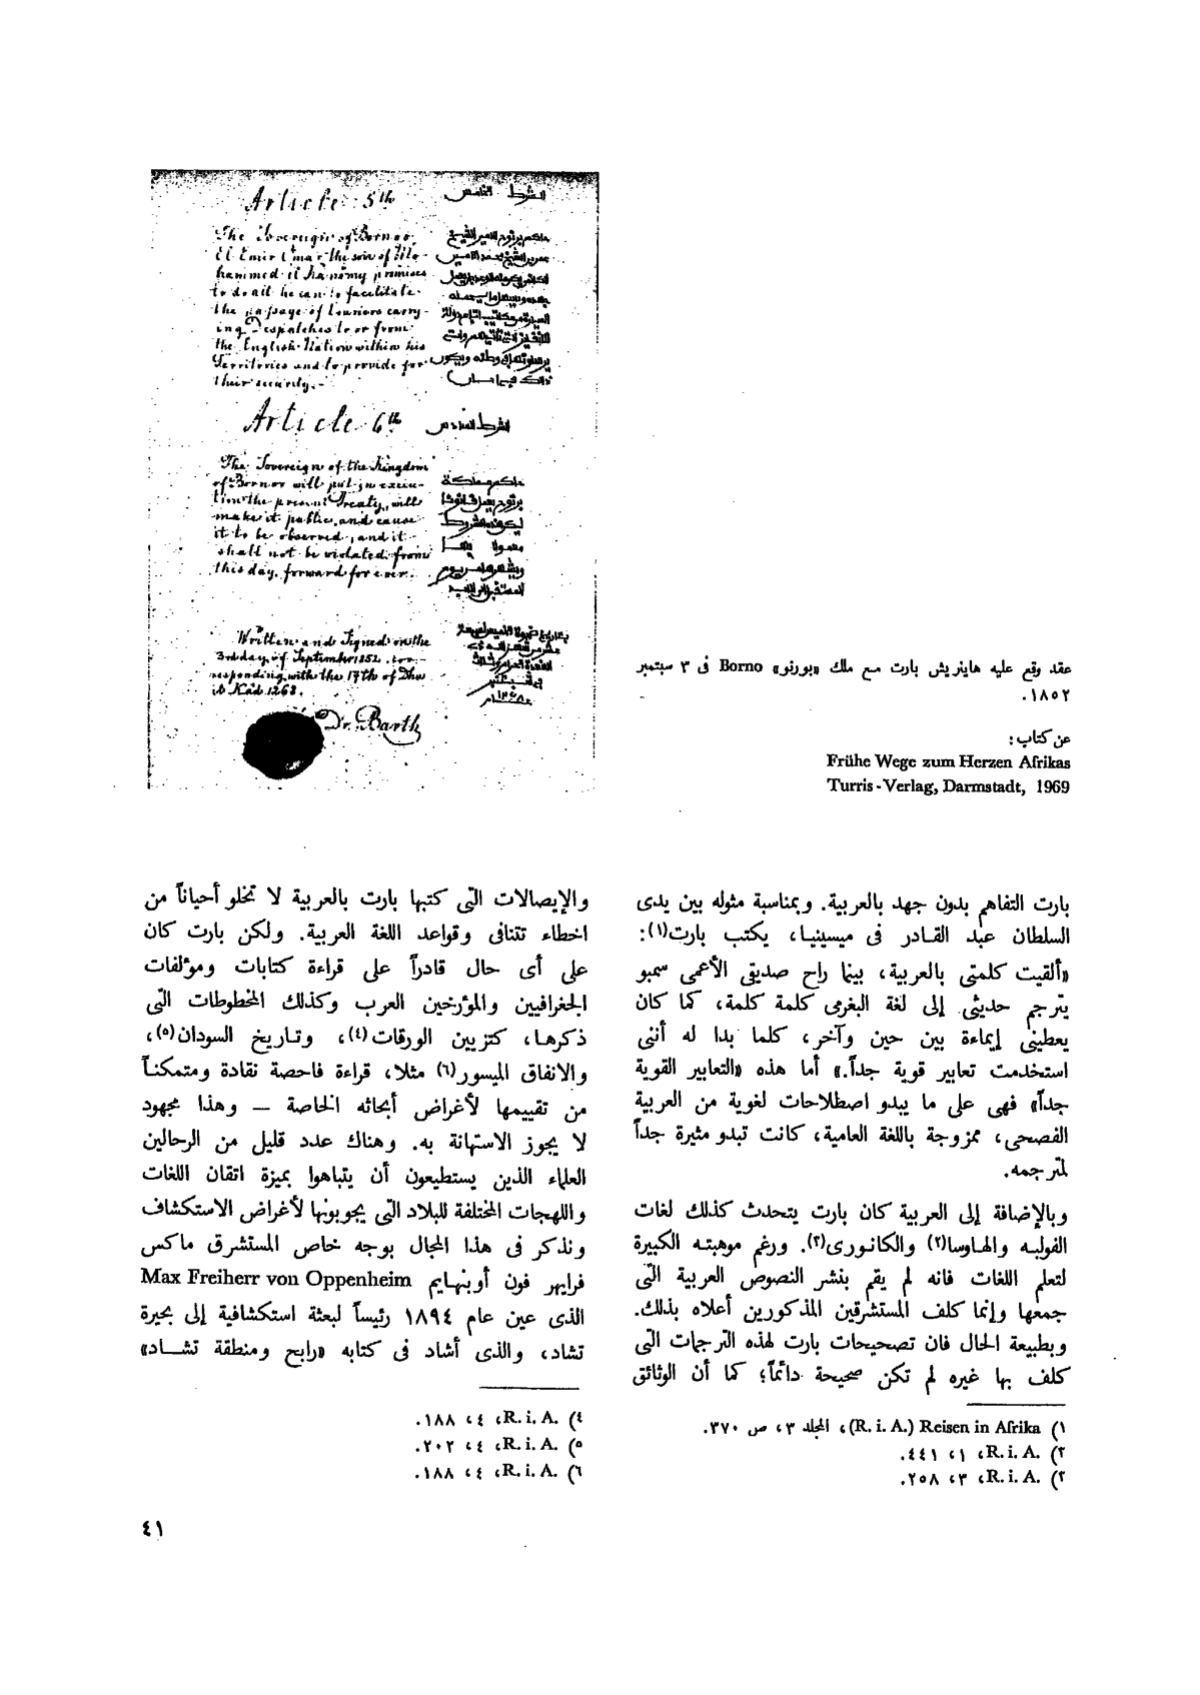 Article 5th
الشرط الخامس
The Sovereign of Bornor
El Emir Omar the son of Mo-
hammed il Kanomy promises
to do all he can to facilitate
the passage of Couriers carry-
ing Despatches to or from
the English Nation within his
Territories and to provide for
their security.-
Article 6th
الشرط السادس
The Sovereign of the Kingdom
of Bornor will put in execu-
tion the present Treaty, will
make it public, and cause
it to be observed, and it
shall not be violated from
this day forward for ever.
Written and Signed on the
3rd day of September 1852. cor-
responding with the 17th of Dhu
il Kad 1268.
Dr. Barth
عقد وقع عليه هاينريش بارت مع ملك «بورنو» Borno فى ٣ سبتمبر
١٨٥٢.
عن كتاب:
Frühe Wege zum Herzen Afrikas
Turris-Verlag, Darmstadt, 1969
بارت التفاهم بدون جهد بالعربية. وبمناسبة مثوله بين يدى
السلطان عبد القادر فى ميسينيا، يكتب بارت(١):
«ألقيت كلمتى بالعربية، بينما راح صديقى الأعمى سمبو
يترجم حديثى إلى لغة البغرمى كلمة كلمة، كما كان
يعطينى إيماءة بين حين وآخر، كلما بدا له أننى
استخدمت تعابير قوية جداً.» أما هذه «التعابير القوية
جداً» فهى على ما يبدو اصطلاحات لغوية من العربية
الفصحى، ممزوجة باللغة العامية، كانت تبدو مثيرة جداً
لمترجمه.
وبالإضافة إلى العربية كان بارت يتحدث كذلك لغات
الفولبه والهاوسا(٢) والكانورى(٣). ورغم موهبته الكبيرة
لتعلم اللغات فانه لم يقم بنشر النصوص العربية التى
جمعها وإنما كلف المستشرقين المذكورين أعلاه بذلك.
وبطبيعة الحال فان تصحيحات بارت لهذه الترجمات التى
كلف بها غيره لم تكن صحيحة دائماً؛ كما أن الوثائق
١) Reisen in Afrika (R. i. A.)، المجلد ٣، ص ٣٧٠.
٢) R. i. A.، ١، ٤٤١.
٣) R. i. A.، ٣، ٢٥٨.
والإيصالات التى كتبها بارت بالعربية لا تخلو أحياناً من
اخطاء تتنافى وقواعد اللغة العربية. ولكن بارت كان
على أى حال قادراً على قراءة كتابات ومؤلفات
الجغرافيين والمؤرخين العرب وكذلك المخطوطات التى
ذكرها، كتزيين الورقات(٤)، وتاريخ السودان(٥)،
والانفاق الميسور(٦) مثلا، قراءة فاحصة نقادة ومتمكناً
من تقييمها لأغراض أبحاثه الخاصة — وهذا مجهود
لا يجوز الاستهانة به. وهناك عدد قليل من الرحالين
العلماء الذين يستطيعون أن يتباهوا بميزة اتقان اللغات
واللهجات المختلفة للبلاد التى يجوبونها لأغراض الاستكشاف
ونذكر فى هذا المجال بوجه خاص المستشرق ماكس
فرايهر فون أوبنهايم Max Freiherr von Oppenheim
الذى عين عام ١٨٩٤ رئيساً لبعثة استكشافية إلى بحيرة
تشاد، والذى أشاد فى كتابه «رابح ومنطقة تشاد»
٤) R. i. A.، ٤، ١٨٨.
٥) R. i. A.، ٤، ٢٠٢.
٦) R. i. A.، ٤، ١٨٨.
٤١